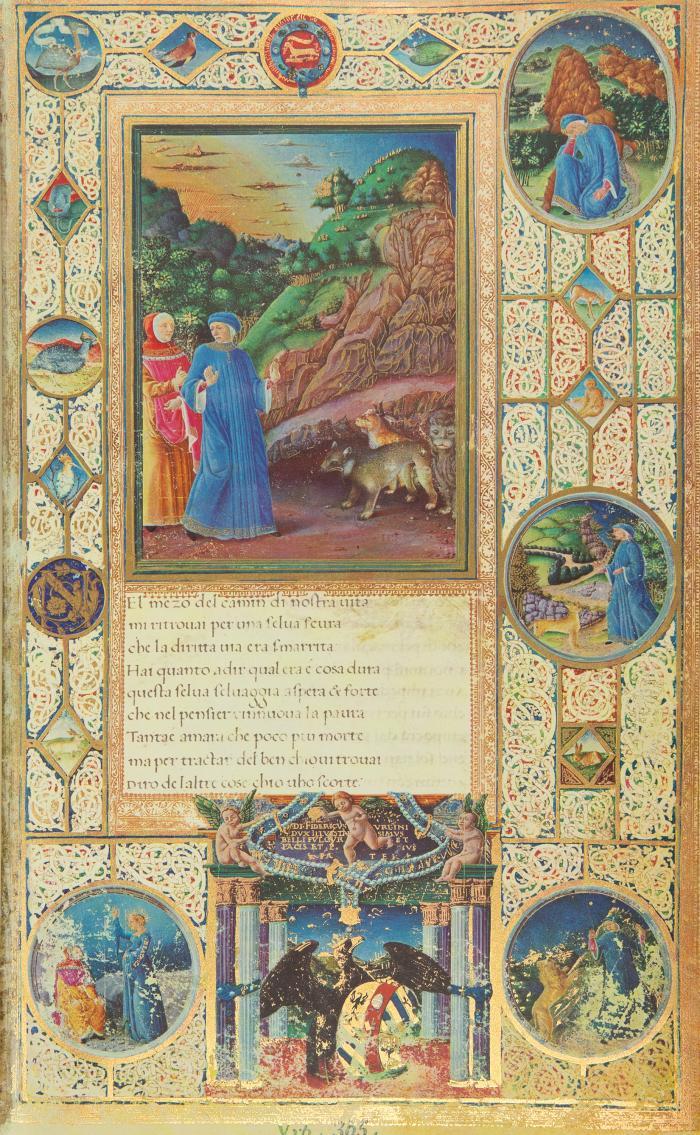 El mezo del camin di nostra uita
mi ritrouai per una selua scura
che la diritta uia era smarrita
Hai quanto a dir qual era è cosa dura
questa selua seluaggia aspera & forte
che nel pensier rinnuoua la paura
Tantae amara che poco piu morte
ma per tractar del ben chio ui trouai
Diro de laltre cose chio uho scorte
FIDERICVS VRBINI
DVX SIMVS
BELLI FVLGVR ET
PACIS ET
Vrb. 365.